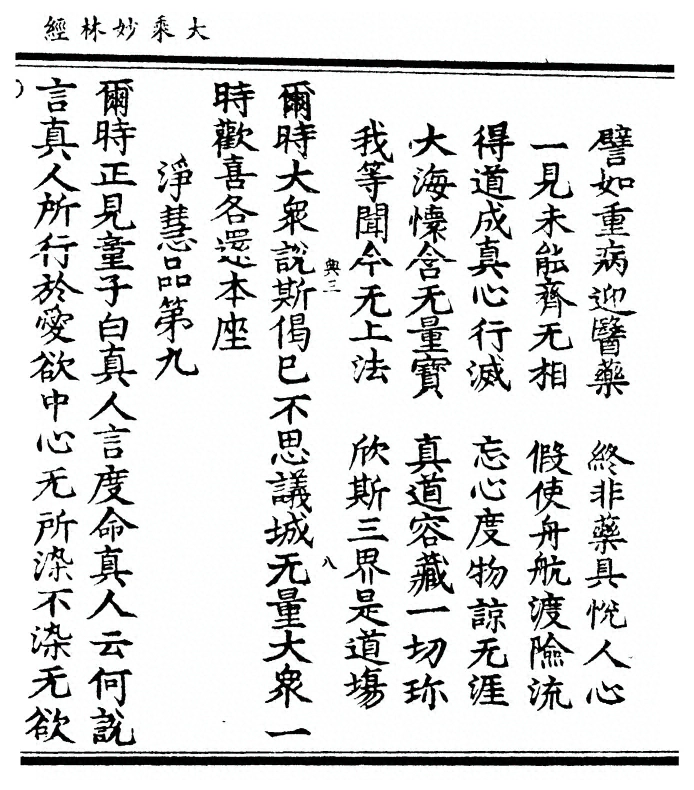 大乘妙林經
譬如重病迎醫藥　終非藥具悅人心
一見未能齊无相　假使舟航渡險流
得道成真心行滅　忘心度物諒无涯
大海懷含无量寶　真道容藏一切珎
我等聞今无上法　欣斯三界是道塲
興三　八
爾時大衆說斯偈已不思議城无量大衆一
時歡喜各還本座
淨慧品第九
爾時正見童子白真人言度命真人云何說
言真人所行於愛欲中心无所染不染无欲